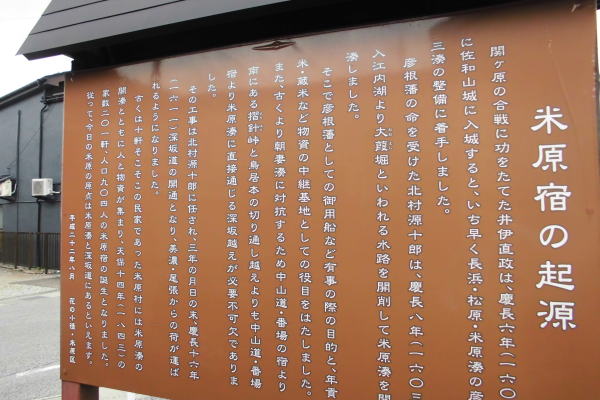 米原宿の起源
関ヶ原の合戦に功をたてた井伊直政は、慶長六年(一六〇
に佐和山城に入城すると、いち早く長浜・松原・米原湊の彦
三湊の整備に着手しました。
彦根藩の命を受けた北村源十郎は、慶長八年(一六〇三
入江内湖より大葭堀といわれる水路を開削して米原湊を開
湊しました。
そこで彦根藩としての御用船など有事の際の目的と、年貢
米・蔵米など物資の中継基地としての役目をはたしました。
また、古くより朝妻湊に対抗するため中山道・番場の宿より
南にある摺針峠と鳥居本の切り通し越えよりも中山道・番場
宿より米原湊に直接通じる深坂越えが必要不可欠でありま
した。
その工事は北村源十郎に任され、三年の月日の末、慶長十六年
(一六一一)深坂道の開通となり、美濃・尾張からの荷が運ば
れるようになりました。
古くは十軒そこそこの民家であった米原村には米原湊の
開湊とともに人と物資が集まり、天保十四年(一八四三)の
家数二〇一軒・人口九〇四人の米原宿の誕生となりました。
従って、今日の米原の原点は米原湊と深坂道にあるといえます。
平成二十二年八月 花の小径・米原区